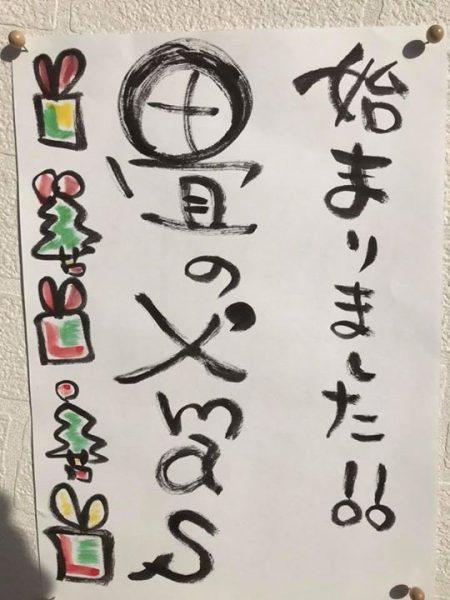 始まりました!!
畳のXmas